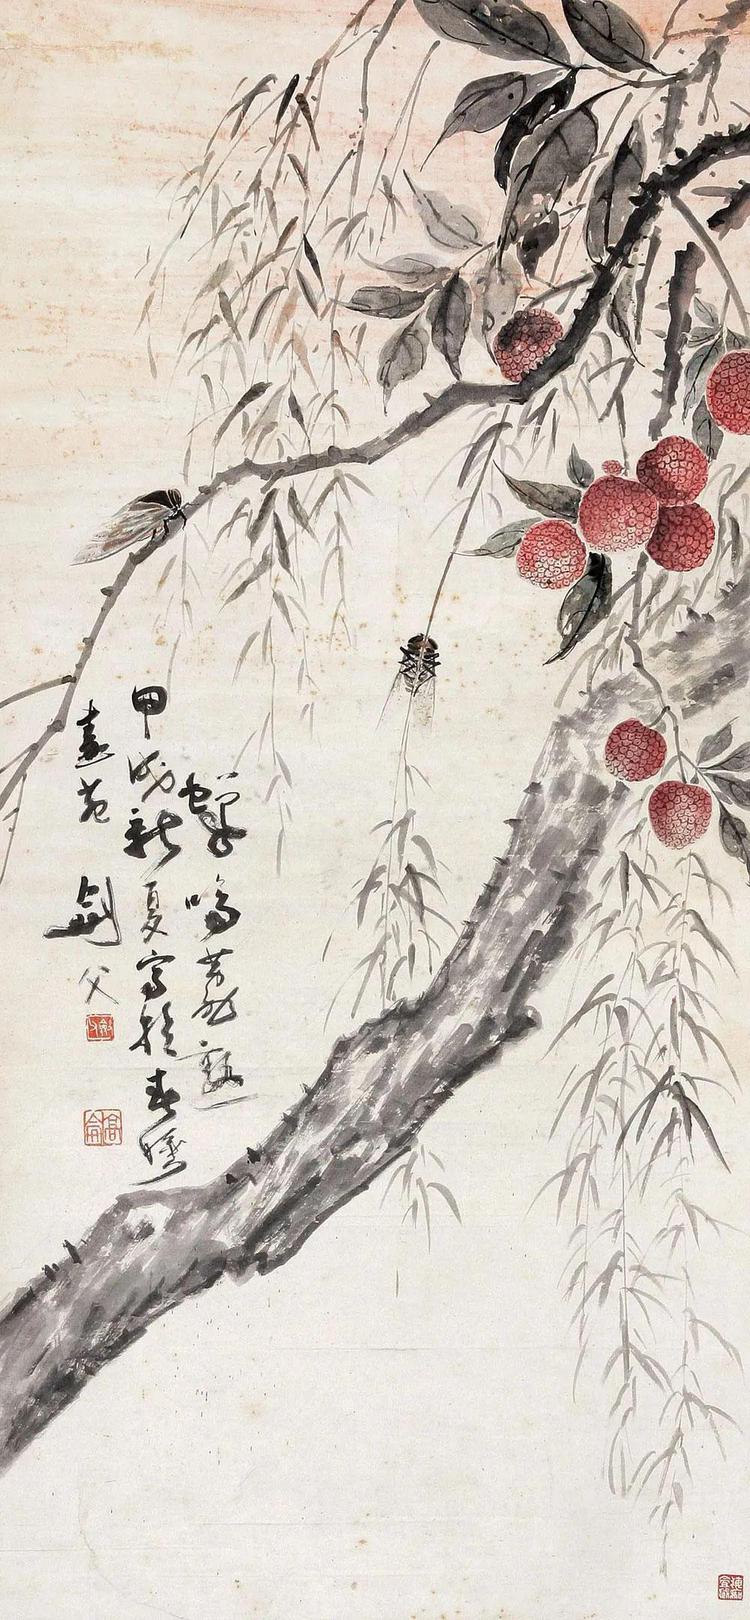 蟬鳴荔熟
甲戌新夏寫於春睡
畫苑 劍父